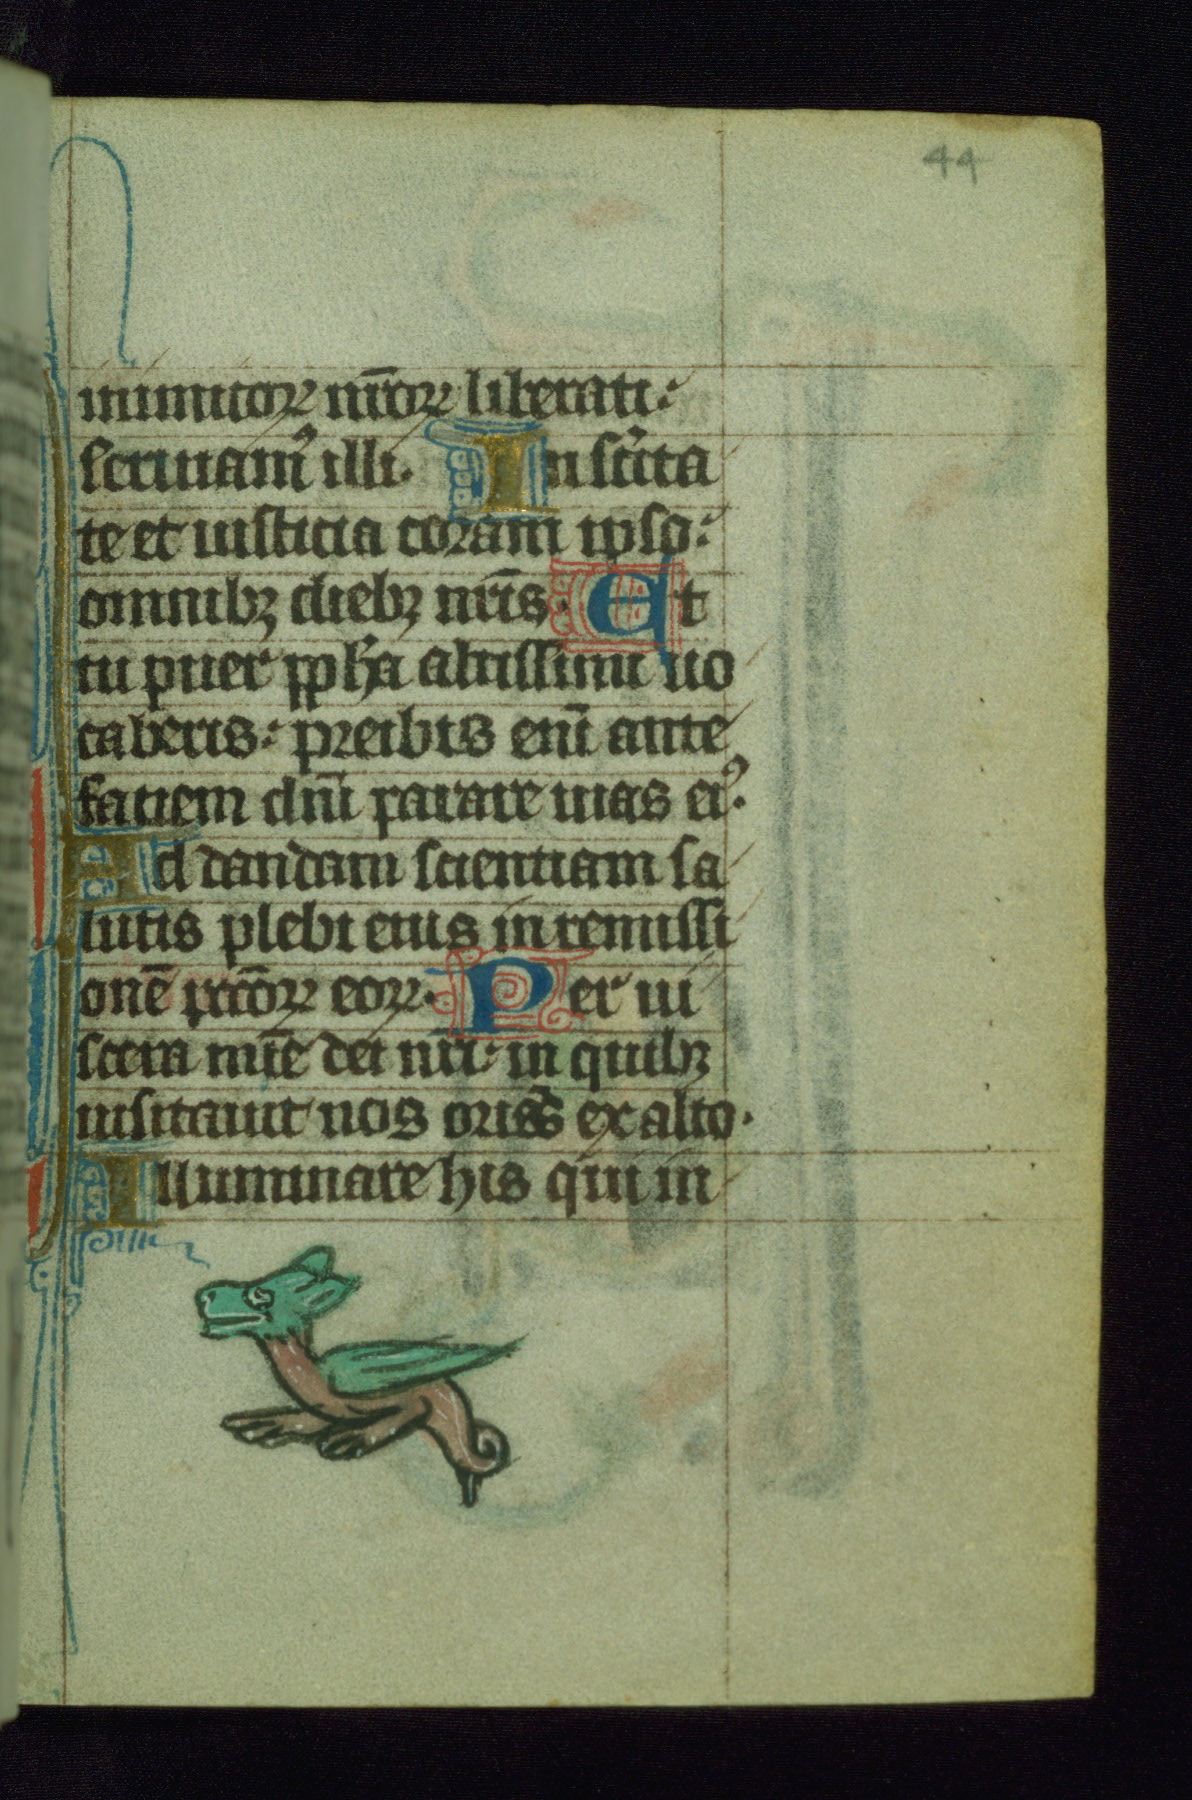 44
inimicoꝝ nr̄oꝝ liberati:
seruiamꝰ illi. In sc̄ita
te et iusticia coram ipso:
omnibꝫ diebꝫ nr̄is. Et
tu puer ꝓph̄a altissimi uo
caberis: preibis eni̅ ante
faciem dn̄i parare uias eiꝰ.
Ad dandam scientiam sa
lutis plebi eius in remissi
one̅ pc̄c̄oꝝ eoꝝ. Per ui
scera mīe dei nr̄i: in quibꝫ
uisitauit nos oriēs ex alto.
Illuminare his qui in